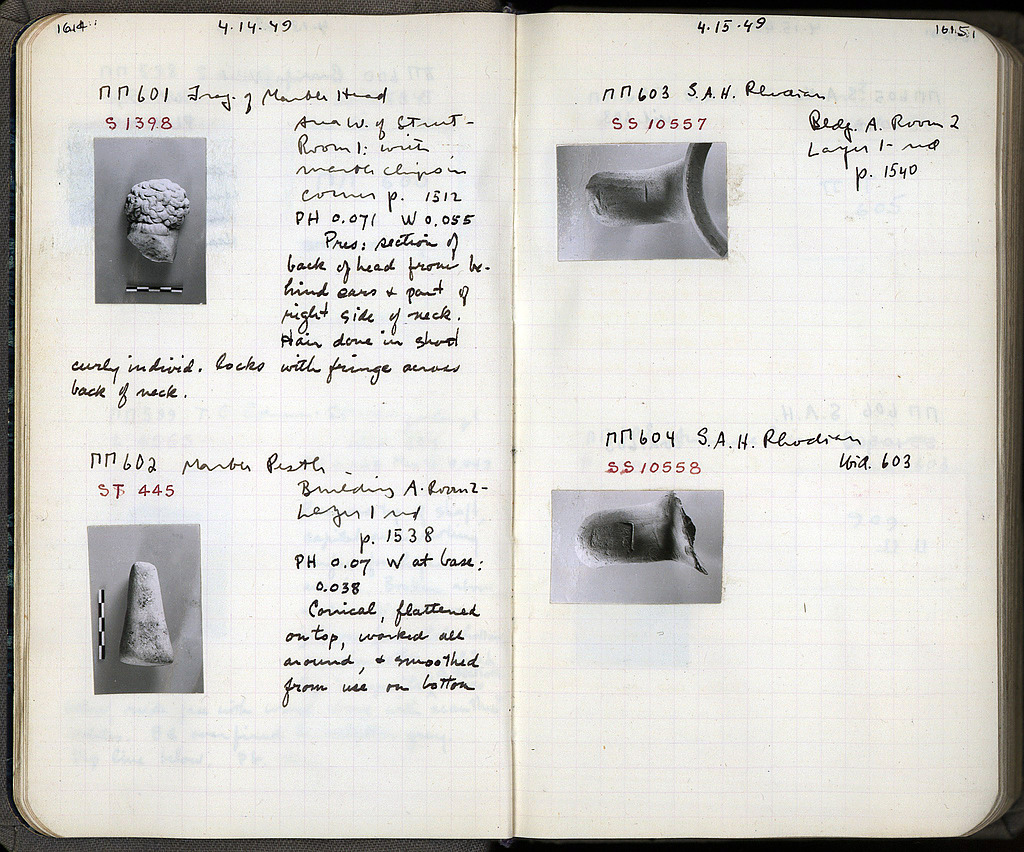 1614
4.14.49
ΠΠ 601 Frag. of Marble Head
S 1398
Area W. of Street -
Room 1: with
marble chips in
corner p. 1512
PH 0.071 W 0.055
Pres: section of
back of head from be-
hind ears & part of
right side of neck.
Hair done in short
curly individ. locks with fringe across
back of neck.
ΠΠ 602 Marble Pestle -
ST 445
Building A. Room 2 -
Layer 1 nd
p. 1538
PH 0.07 W at base:
0.038
Conical, flattened
on top, worked all
around, & smoothed
from use on bottom
4.15.49
1615
ΠΠ 603 S.A.H. Rhodian
SS 10557
Bldg. A. Room 2
Layer 1 - nd
p. 1540
ΠΠ 604 S.A.H. Rhodian
SS 10558
Ibid. 603